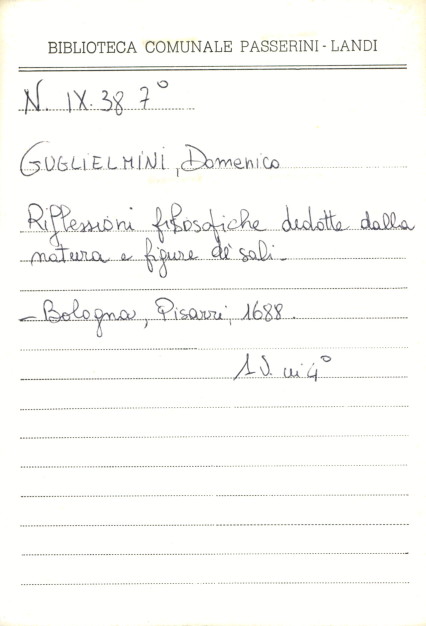 BIBLIOTECA COMUNALE PASSERINI - LANDI
N. IX. 38 7°
GUGLIELMINI, Domenico
Riflessioni filosofiche dedotte dalla
natura e figure de' sali -
- Bologna, Pisarri, 1688.
1 v. in 4°